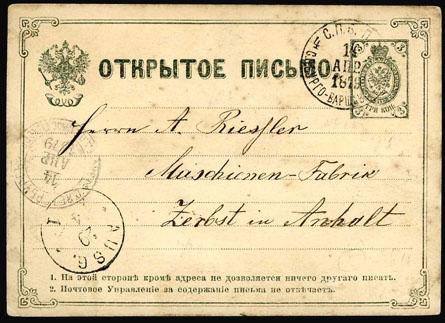 ОТКРЫТОЕ ПИСЬМО.
С.П.Б.
14
АПР.
1879
3
ТРИ КОП.
Herrn A. Riessler
Maschienen-Fabrik
Zerbst in Anhalt
14
АПР
AUSG.
1. На этой сторонѣ кромѣ адреса не дозволяется ничего другаго писать.
2. Почтовое Управленіе за содержаніе письма не отвѣчаетъ.